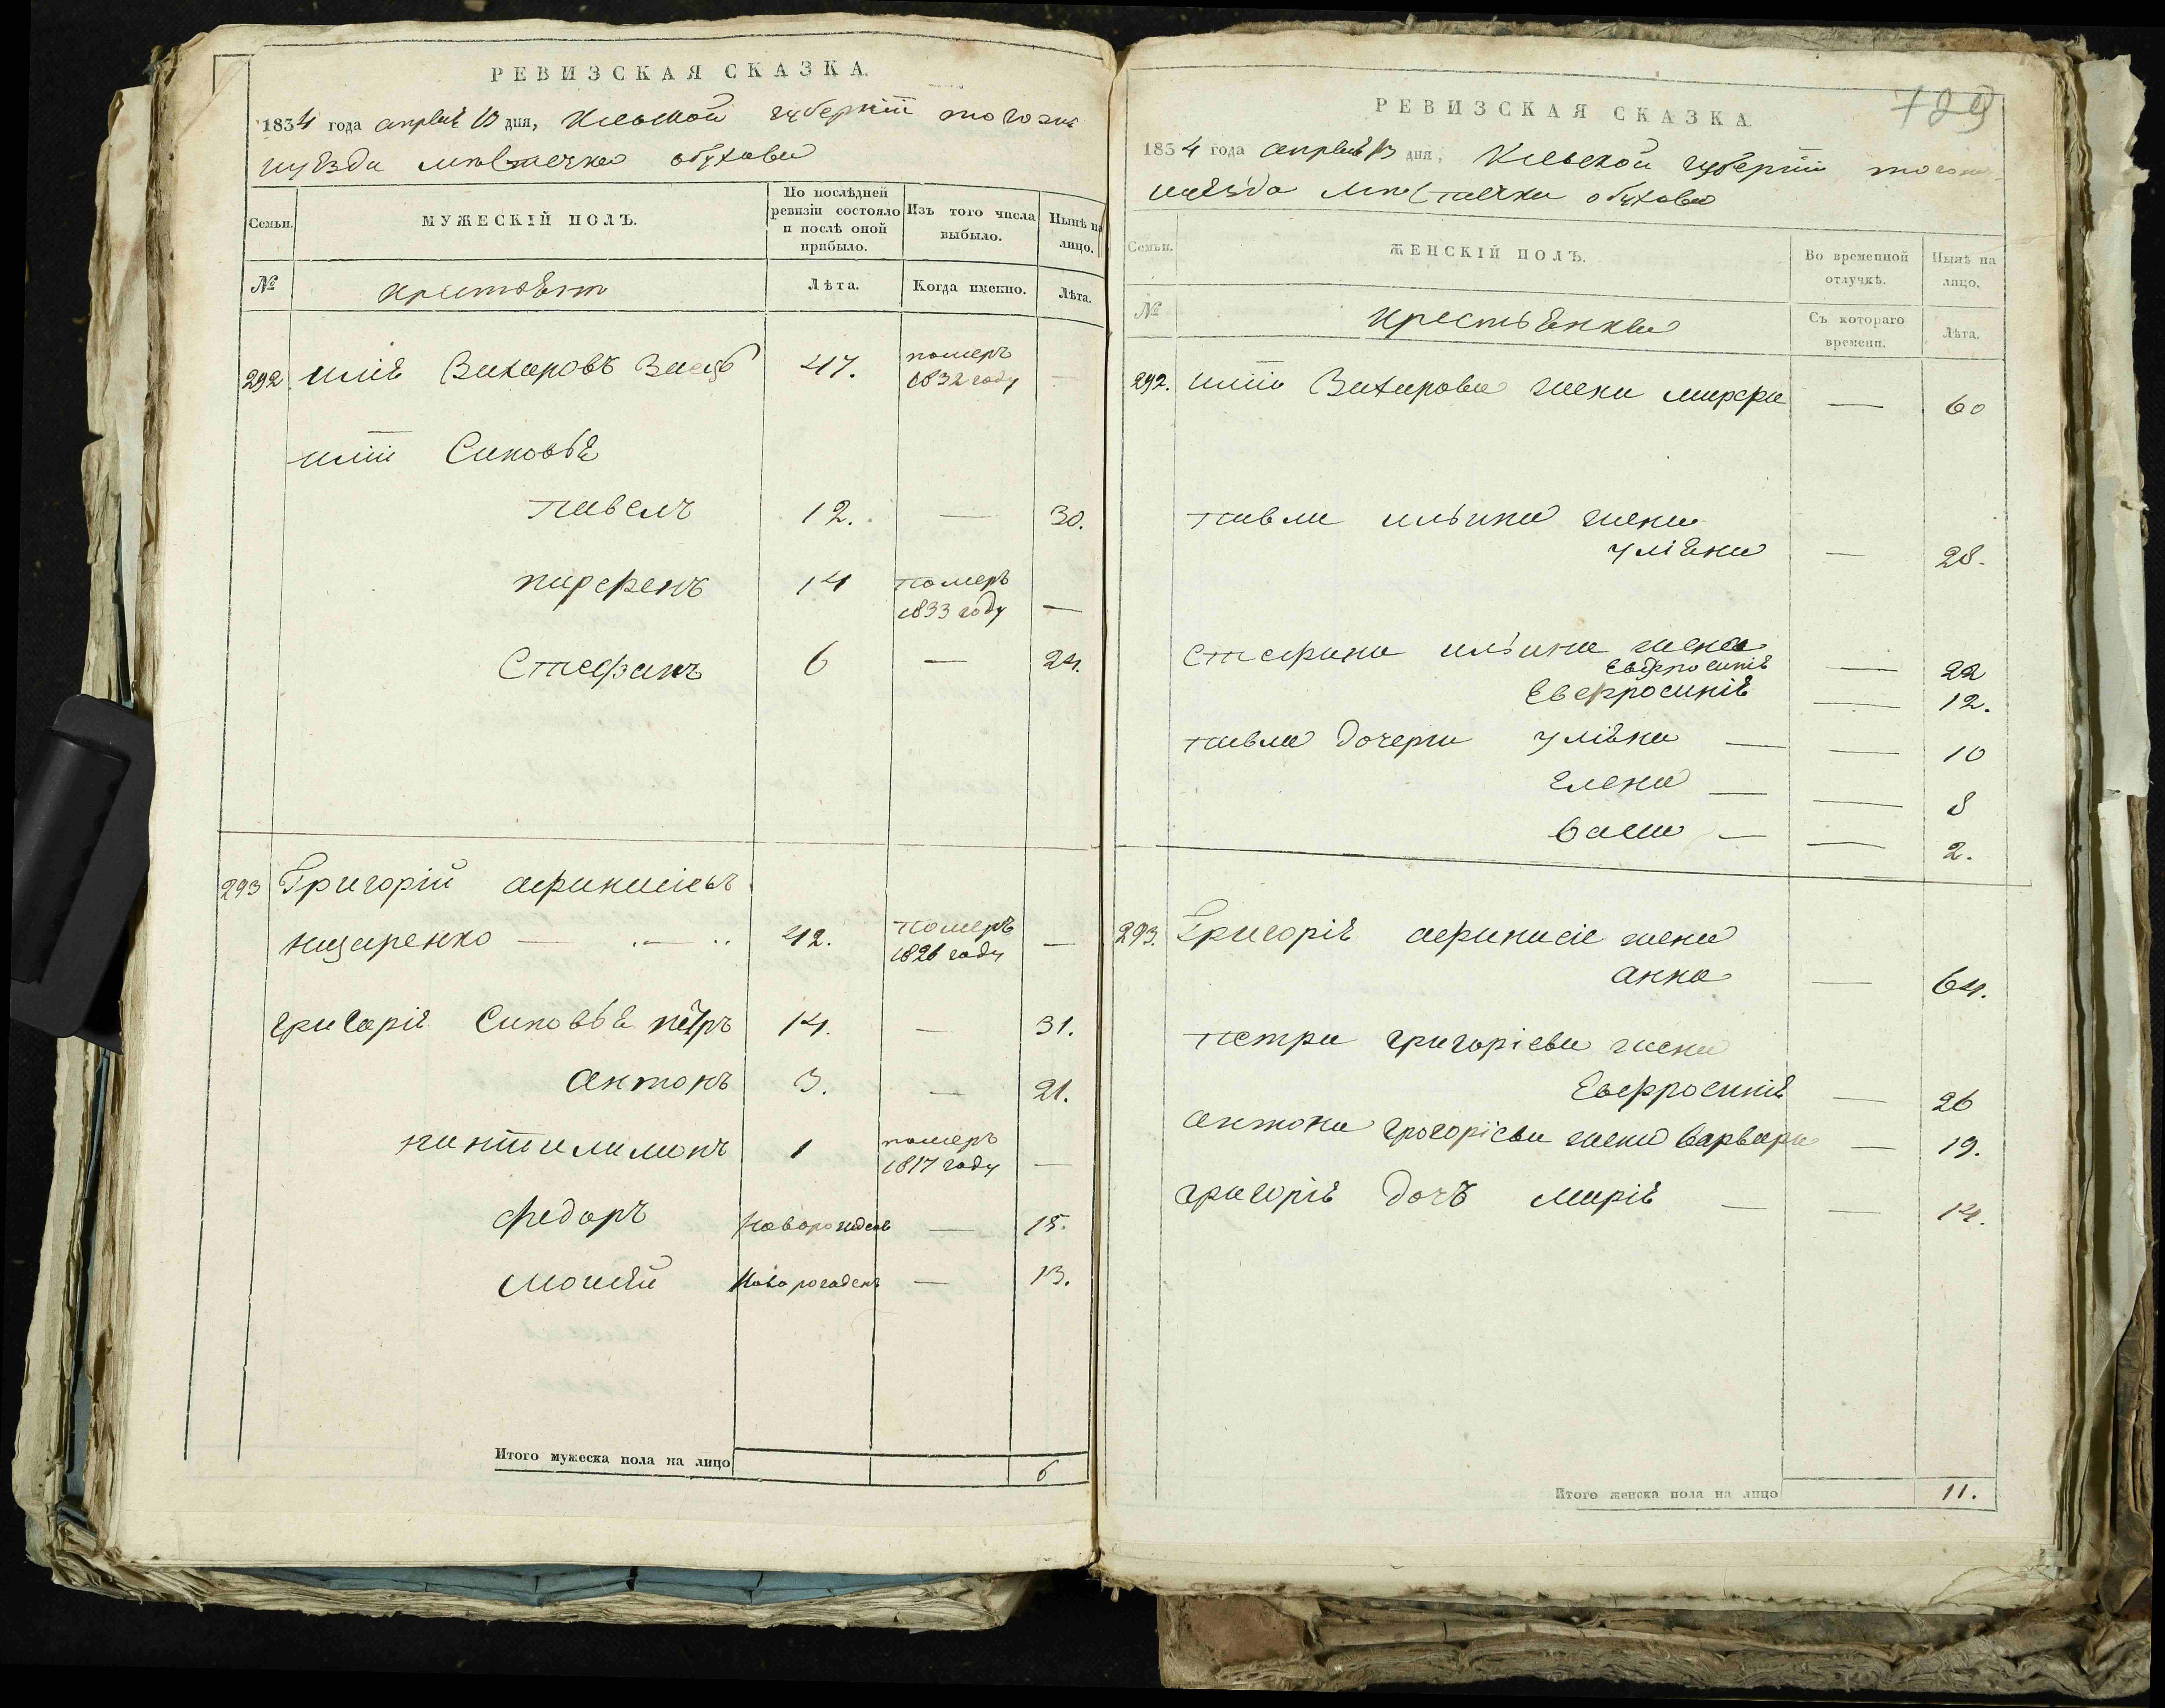 РЕВИЗСКАЯ СКАЗКА.
1834 года апреля 13 дня, Киевской губернии того же
уезда местечка обухова
Семьи.
МУЖЕСКІЙ ПОЛЪ.
По послѣдней ревизіи состояло и послѣ оной прибыло.
Изъ того числа выбыло.
Нынѣ на лицо.
№
Лѣта.
Когда именно.
Лѣта.
292 илія Захаровъ 47. померъ 1832 году —
иліи Синовья
павелъ 12. — 30.
парфенъ 14 померъ 1833 году —
Стефанъ 6 — 24.
293 Григорій афанасіевъ
42. померъ 1826 году —
григорія Синовья петръ 14. — 31.
антонъ 3. — 21.
пантилимонъ 1 померъ 1817 году —
федоръ новорожденъ — 15.
моисей новорожденъ — 13.
Итого мужеска пола на лицо 6
РЕВИЗСКАЯ СКАЗКА
729
1834 года апреля 13 дня, Киевской губерніи того же
уезда местечка обухова
Семьи.
ЖЕНСКІЙ ПОЛЪ.
Во временной отлучкѣ.
Нынѣ на лицо.
№
крестьянки
Съ котораго времени.
Лѣта.
292. иліи Захарова жена марфа — 60
павла ильина жена
уліяна — 28.
Стефана ильина жена
Евфросинія — 22
Евфросинія — 12.
павла дочери уліяна — — 10
елена — — 8
— — 2.
293. Григорія афанасіе жена
анна — 64.
петра григоріева жена
Евфросинія — 26
антона григоріева жена варвара — 19.
григорія дочъ марія — — 14.
Итого женска пола на лицо 11.